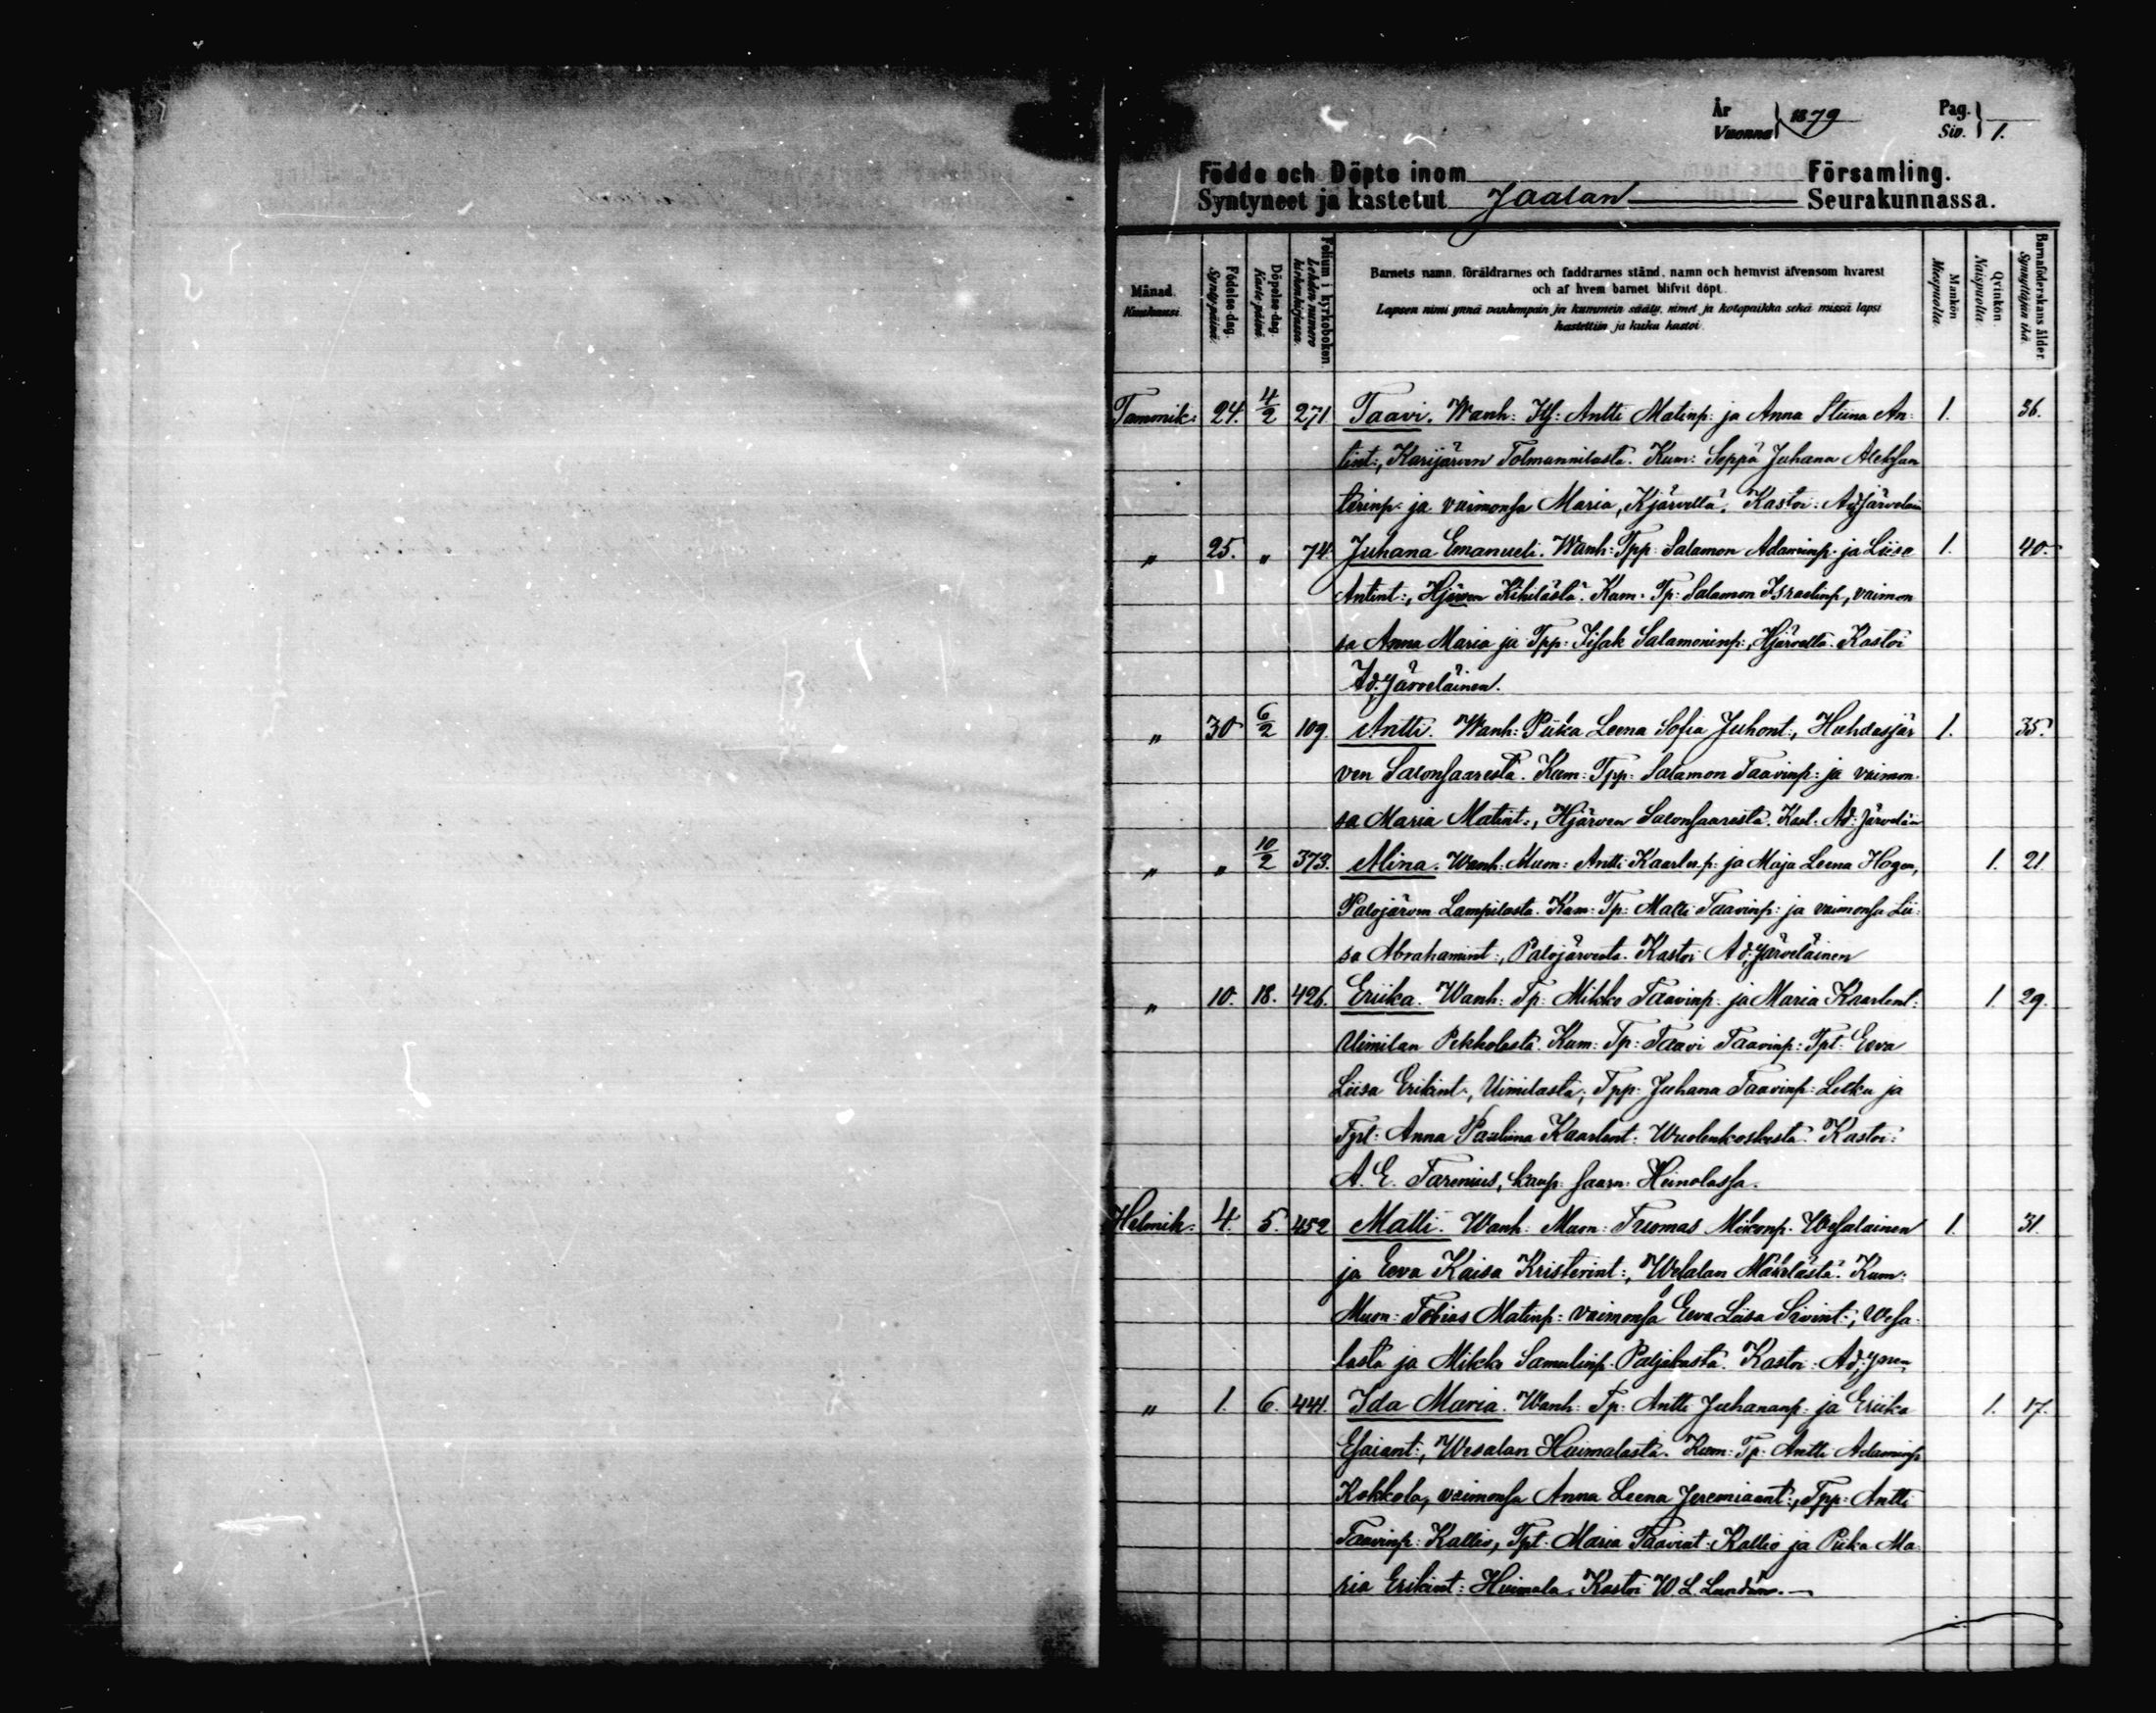 År
Vuonna 1879
Pag.
Siv. 1.
Födde och Döpte inom Församling.
Syntyneet ja kastetut Jaalan Seurakunnassa.
Månad. Kuukausi.
Födelse-dag. Syntypäivä.
Döpelse-dag. Kaste päivä.
Folium i kyrkoboken Lehden numero kirkonkirjassa.
Barnets namn, föräldrarnes och faddrarnes stånd, namn och hemvist äfvensom hvarest
och af hvem barnet blifvit döpt.
Lapsen nimi ynnä vanhempain ja kummein sääty, nimet ja kotopaikka sekä missä lapsi
kastettiin ja kuka kastoi.
Mankön Miespuolia.
Qvinkön. Naispuolia.
Barnaföderskans ålder. Synnyttäjän ikä.
Tammik: 24. 4/2 271 Taavi. Wanh: Itf: Antti Matinp: ja Anna Stiina An- 1. 36.
tint:, Karijärven Tolmannilasta. Kum: Seppä Juhana Aleksan
terinp: ja vaimonsa Maria, Kjärveltä. Kastoi: Ad. Järveläin
" 25. " 74. Juhana Emanueli. Wanh: Tpp: Salamon Adaminp. ja Liisa 1. 40.
Antint:, Hjärven Kihilästä. Kum. Tp: Salamon Israelinp, vaimon
sa Anna Maria ja Tpp: Iisak Salamoninp:, Hjärveltä. Kastoi
Ad. Järveläinen.
" 30 6/2 109. Antti. Wanh: Piika Leena Sofia Juhont:, Huhdasjär 1. 35.
ven Salonsaaresta. Kum: Tpp: Salamon Taavinp: ja vaimon-
sa Maria Matint:, Hjärven Salonsaaresta. Kast. Ad: Järveläin
" " 10/2 373. Alina. Wanh: Muon: Antti Kaarlenp: ja Maja Leena Hogen, 1. 21.
Palojärven Lampilasta. Kum: Tp: Matti Taavinp: ja vaimonsa Lii-
sa Abrahamint:, Palojärvelta. Kastoi Ad. Järveläinen
" 10. 18. 426. Eriika. Wanh: Tp: Mikko Taavinp: ja Maria Kaarlent: 1. 29.
Uimilan Pekkolasta. Kum: Tp: Taavi Taavinp: Tpt: Eeva
Liisa Erikint:, Uimilasta; Tpp: Juhana Taavinp: Lelku ja
Tpt: Anna Pauliina Kaarlent: Wuolenkoskesta. Kastoi:
A. E. Farenius, kaup: saarn: Heinolassa.
Helmik. 4. 5. 452 Matti. Wanh: Muon: Tuomas Mikonp. Wesalainen 1. 31.
ja Eeva Kaisa Kristerint:, Weлalan Määrlästä. Kum:
Muon: Tobias Matinp: vaimonsa Eeva Liisa Sivint:, Wesa-
lasta ja Mikko Samulinp. Paljakasta. Kastoi: Ad. Jnen
" 1. 6. 444. Ida Maria. Wanh: Tp: Antti Juhananp: ja Eriika 1. 17.
Esaiant:, Wesalan Huimalasta. Kum: Tp: Antti Adaminp
Kokkola, vaimonsa Anna Leena Jeremiaant:, Tpp: Antti
Taavinp: Kallio, Tpt: Maria Taavint: Kallio ja Piika Ma-
ria Erikint: Huimala. Kastoi W. L. Lundén.